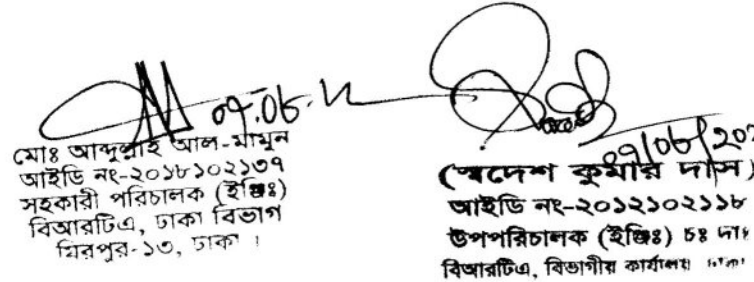 ০৭.০৮.২
মোঃ আব্দুল্লাহ আল-মামুন
আইডি নং-২০১৮১০২১৩৭
সহকারী পরিচালক (ইঞ্জিঃ)
বিআরটিএ, ঢাকা বিভাগ
মিরপুর-১৩, ঢাকা ।
০৭/০৮/২০২
(স্বদেশ কুমার দাস)
আইডি নং-২০১২১০২১১৮
উপপরিচালক (ইঞ্জিঃ) চঃ দাঃ
বিআরটিএ, বিভাগীয় কার্যালয় ঢাকা